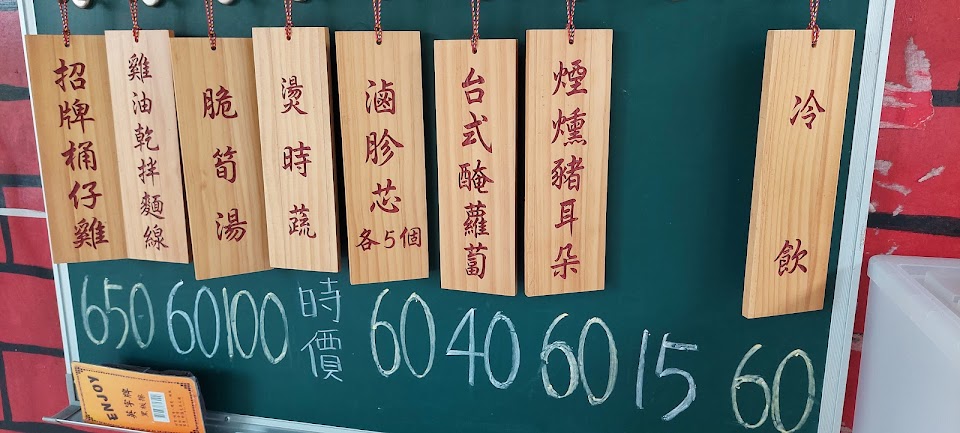 招牌桶仔雞
雞油乾拌麵線
脆筍湯
燙時蔬
滷胗芯
各5個
台式醃蘿蔔
煙燻豬耳朵
冷飲
650
60
100
時價
60
40
60
15
60
ENJOY